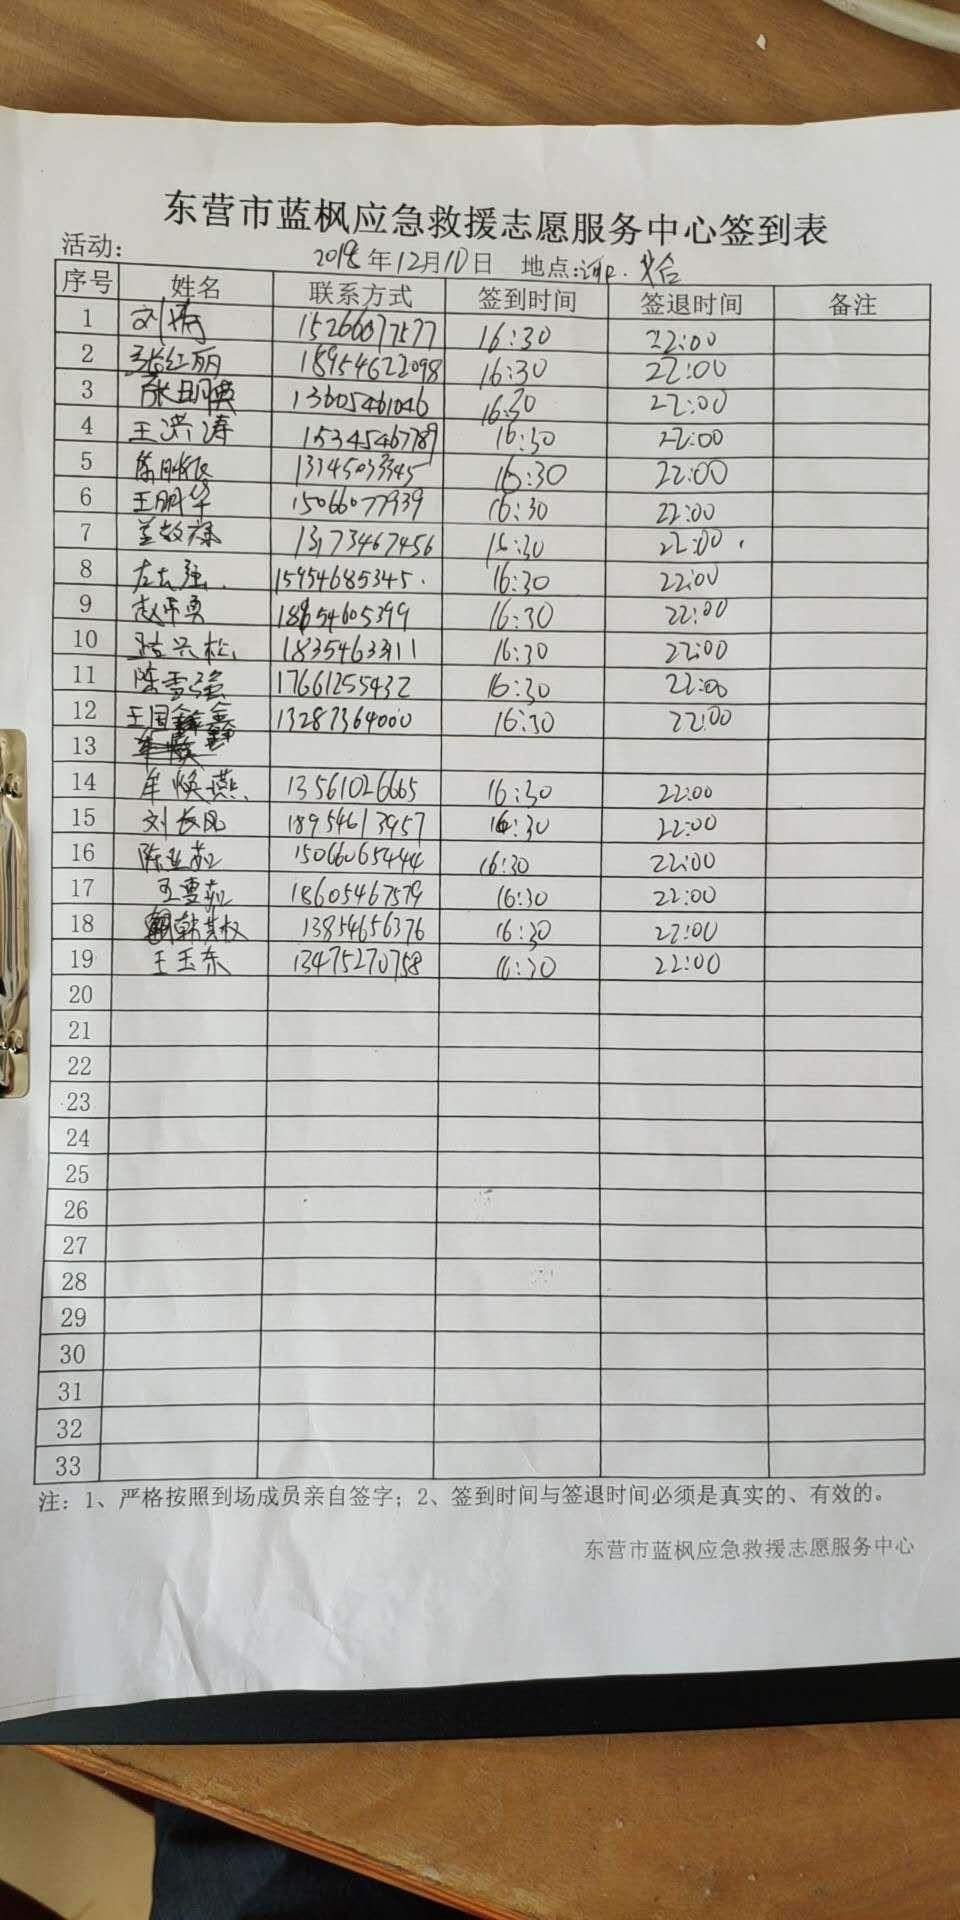 东营市蓝枫应急救援志愿服务中心签到表
活动： 2018年12月10日 地点：
序号 姓名 联系方式 签到时间 签退时间 备注
1 刘涛 15266077577 16:30 22:00
2 张红丽 18954622098 16:30 22:00
3 13605461046 16:30 22:00
4 王洪涛 15345467789 16:30 22:00
5 16:30 22:00
6 王明华 15066077939 16:30 22:00
7 13173467456 16:30 22:00
8 15954685345 16:30 22:00
9 16:30 22:00
10 16:30 22:00
11 陈雪强 17661255432 16:30 22:00
12 王国鑫 13287364000 16:30 22:00
13
14 牟焕燕 13561026665 16:30 22:00
15 刘长凤 18954613957 16:30 22:00
16 陈亚茹 15066065444 16:30 22:00
17 18605467579 16:30 22:00
18 韩其权 13854656376 16:30 22:00
19 王玉东 13475270758 16:30 22:00
20
21
22
23
24
25
26
27
28
29
30
31
32
33
注：1、严格按照到场成员亲自签字；2、签到时间与签退时间必须是真实的、有效的。
东营市蓝枫应急救援志愿服务中心